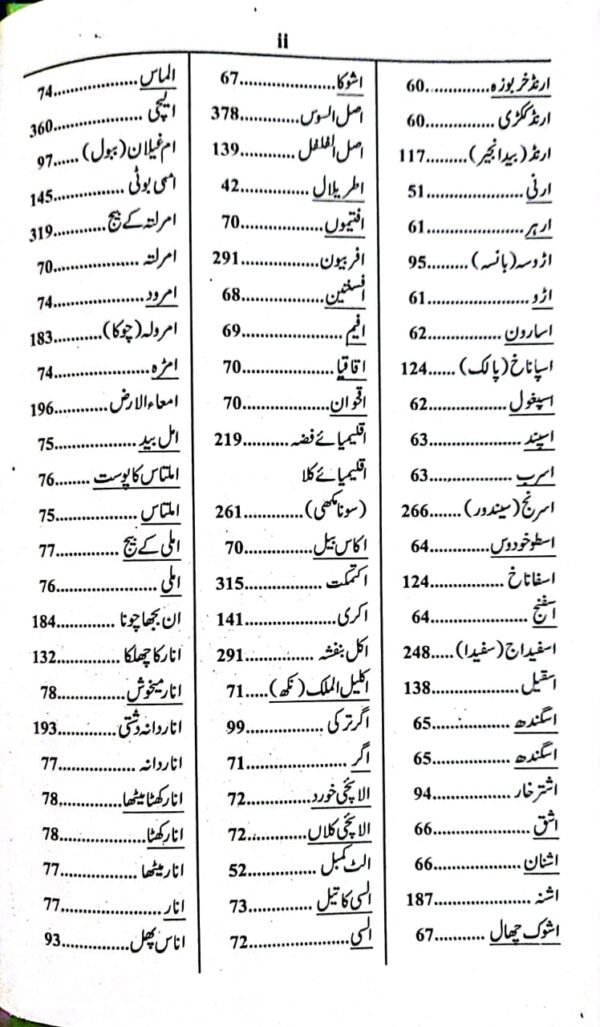 ii
ارنڈ خربوزہ.............60
ارنڈ ککڑی.............60
ارنڈ (بیدانجیر).........117
ارنی.....................51
ارہر.....................61
اڑوسہ (بانسہ).........95
اڑو.....................61
اسارون.................62
اسپاناخ (پالک)......124
اسپغول.................62
اسپند...................63
اسرب...................63
اسرنج (سیندور).......266
اسطوخودوس............64
اسفاناخ................124
اسفنج...................64
اسفیداج (سفیدا).....248
اسقیل..................138
اسگندھ................65
اسگندھ................65
اشترخار................94
اشق.....................66
اشنان...................66
اشنہ....................187
اشوک چھال...........67
اشوکا..................67
اصل السوس...........378
اصل الفلفل............139
اطریلال................42
افتیموں................70
افربیون................291
افسنتین................68
افیم.....................69
اقاقیا...................70
اقحوان.................70
اقلیمیائے فضہ.........219
اقلیمیائے کلا
(سونا مکھی)...........261
اکاس بیل..............70
اکتمکت................315
اکری...................141
اکل بنفشہ..............291
اکلیل الملک (نکھ).....71
اگر ترکی...............99
اگر......................71
الائچی خورد............72
الائچی کلاں............72
الٹ کمبل...............52
السی کا تیل............73
السی....................72
الماس..................74
ایلچی..................360
ام غیلان (ببول).....97
امسی بوٹی..............145
امرلتہ کے بیج..........319
امرلتہ..................70
امرود...................74
امرولہ (چوکا).........183
امڑہ....................74
امعاء الارض............196
امل بید.................75
املتاس کا پوست........76
املتاس.................75
املی کے بیج............77
املی.....................76
ان بجھا چونا............184
انار کا چھلکا............132
انار میخوش.............78
انار دانہ دشتی...........193
انار دانہ................77
انار کھٹا میٹھا...........78
انار کھٹا................78
انار میٹھا...............77
انار.....................77
اناس پھل..............93